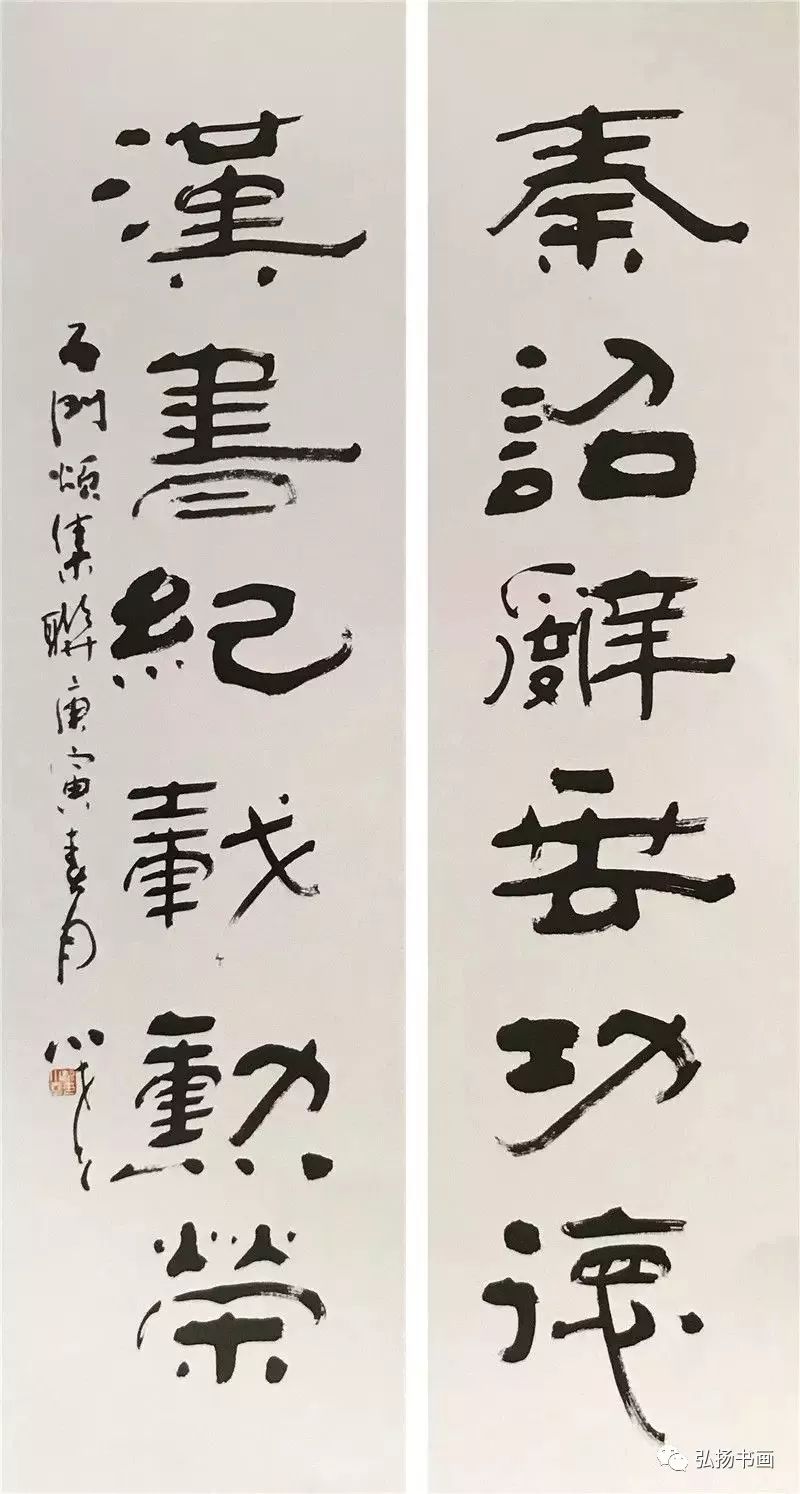 秦詔辭垂功德
漢書紀載勳榮
石門頌集聯庚寅春月
弘扬书画